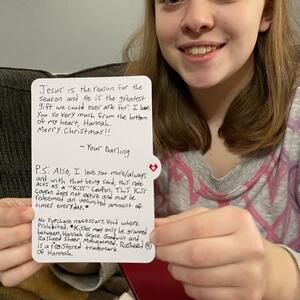 Jesus is the reason for the
season and He is the greatest
gift we could ever ask for. I love
you so very much from the bottom
of my heart, Hannah.
Merry Christmas!!
~ Your Darling
P.S. Also, I love you more/always
and with that being said, this note
acts as a "Kiss" Coupon. This Kiss
Coupon does not expire and may be
redeemed an unlimited amount of
times everyday.*
No purchase necessary. Void where
Prohibited. *Kisses may only be granted
between Hannah Grace Goodwin and
Rasheed Mohammed. Rasheed ®
is a registered trademark
of Hannah.